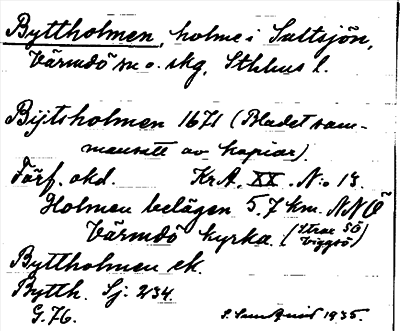 Byttholmen, holme i Saltsjön,
Värmdö sn o. skg, Sthlms l.
Bÿtsholmen 1671 (Bladet sam-
mansatt av kopior).
Förf. okd. KrA. XX. N:o 13.
Holmen belägen 5,7 km. NNÖ
Värmdö kyrka. (Strax SÖ
Viggsö)
Byttholmen ek.
Bytth. Sj. 234.
G.76. 1935.